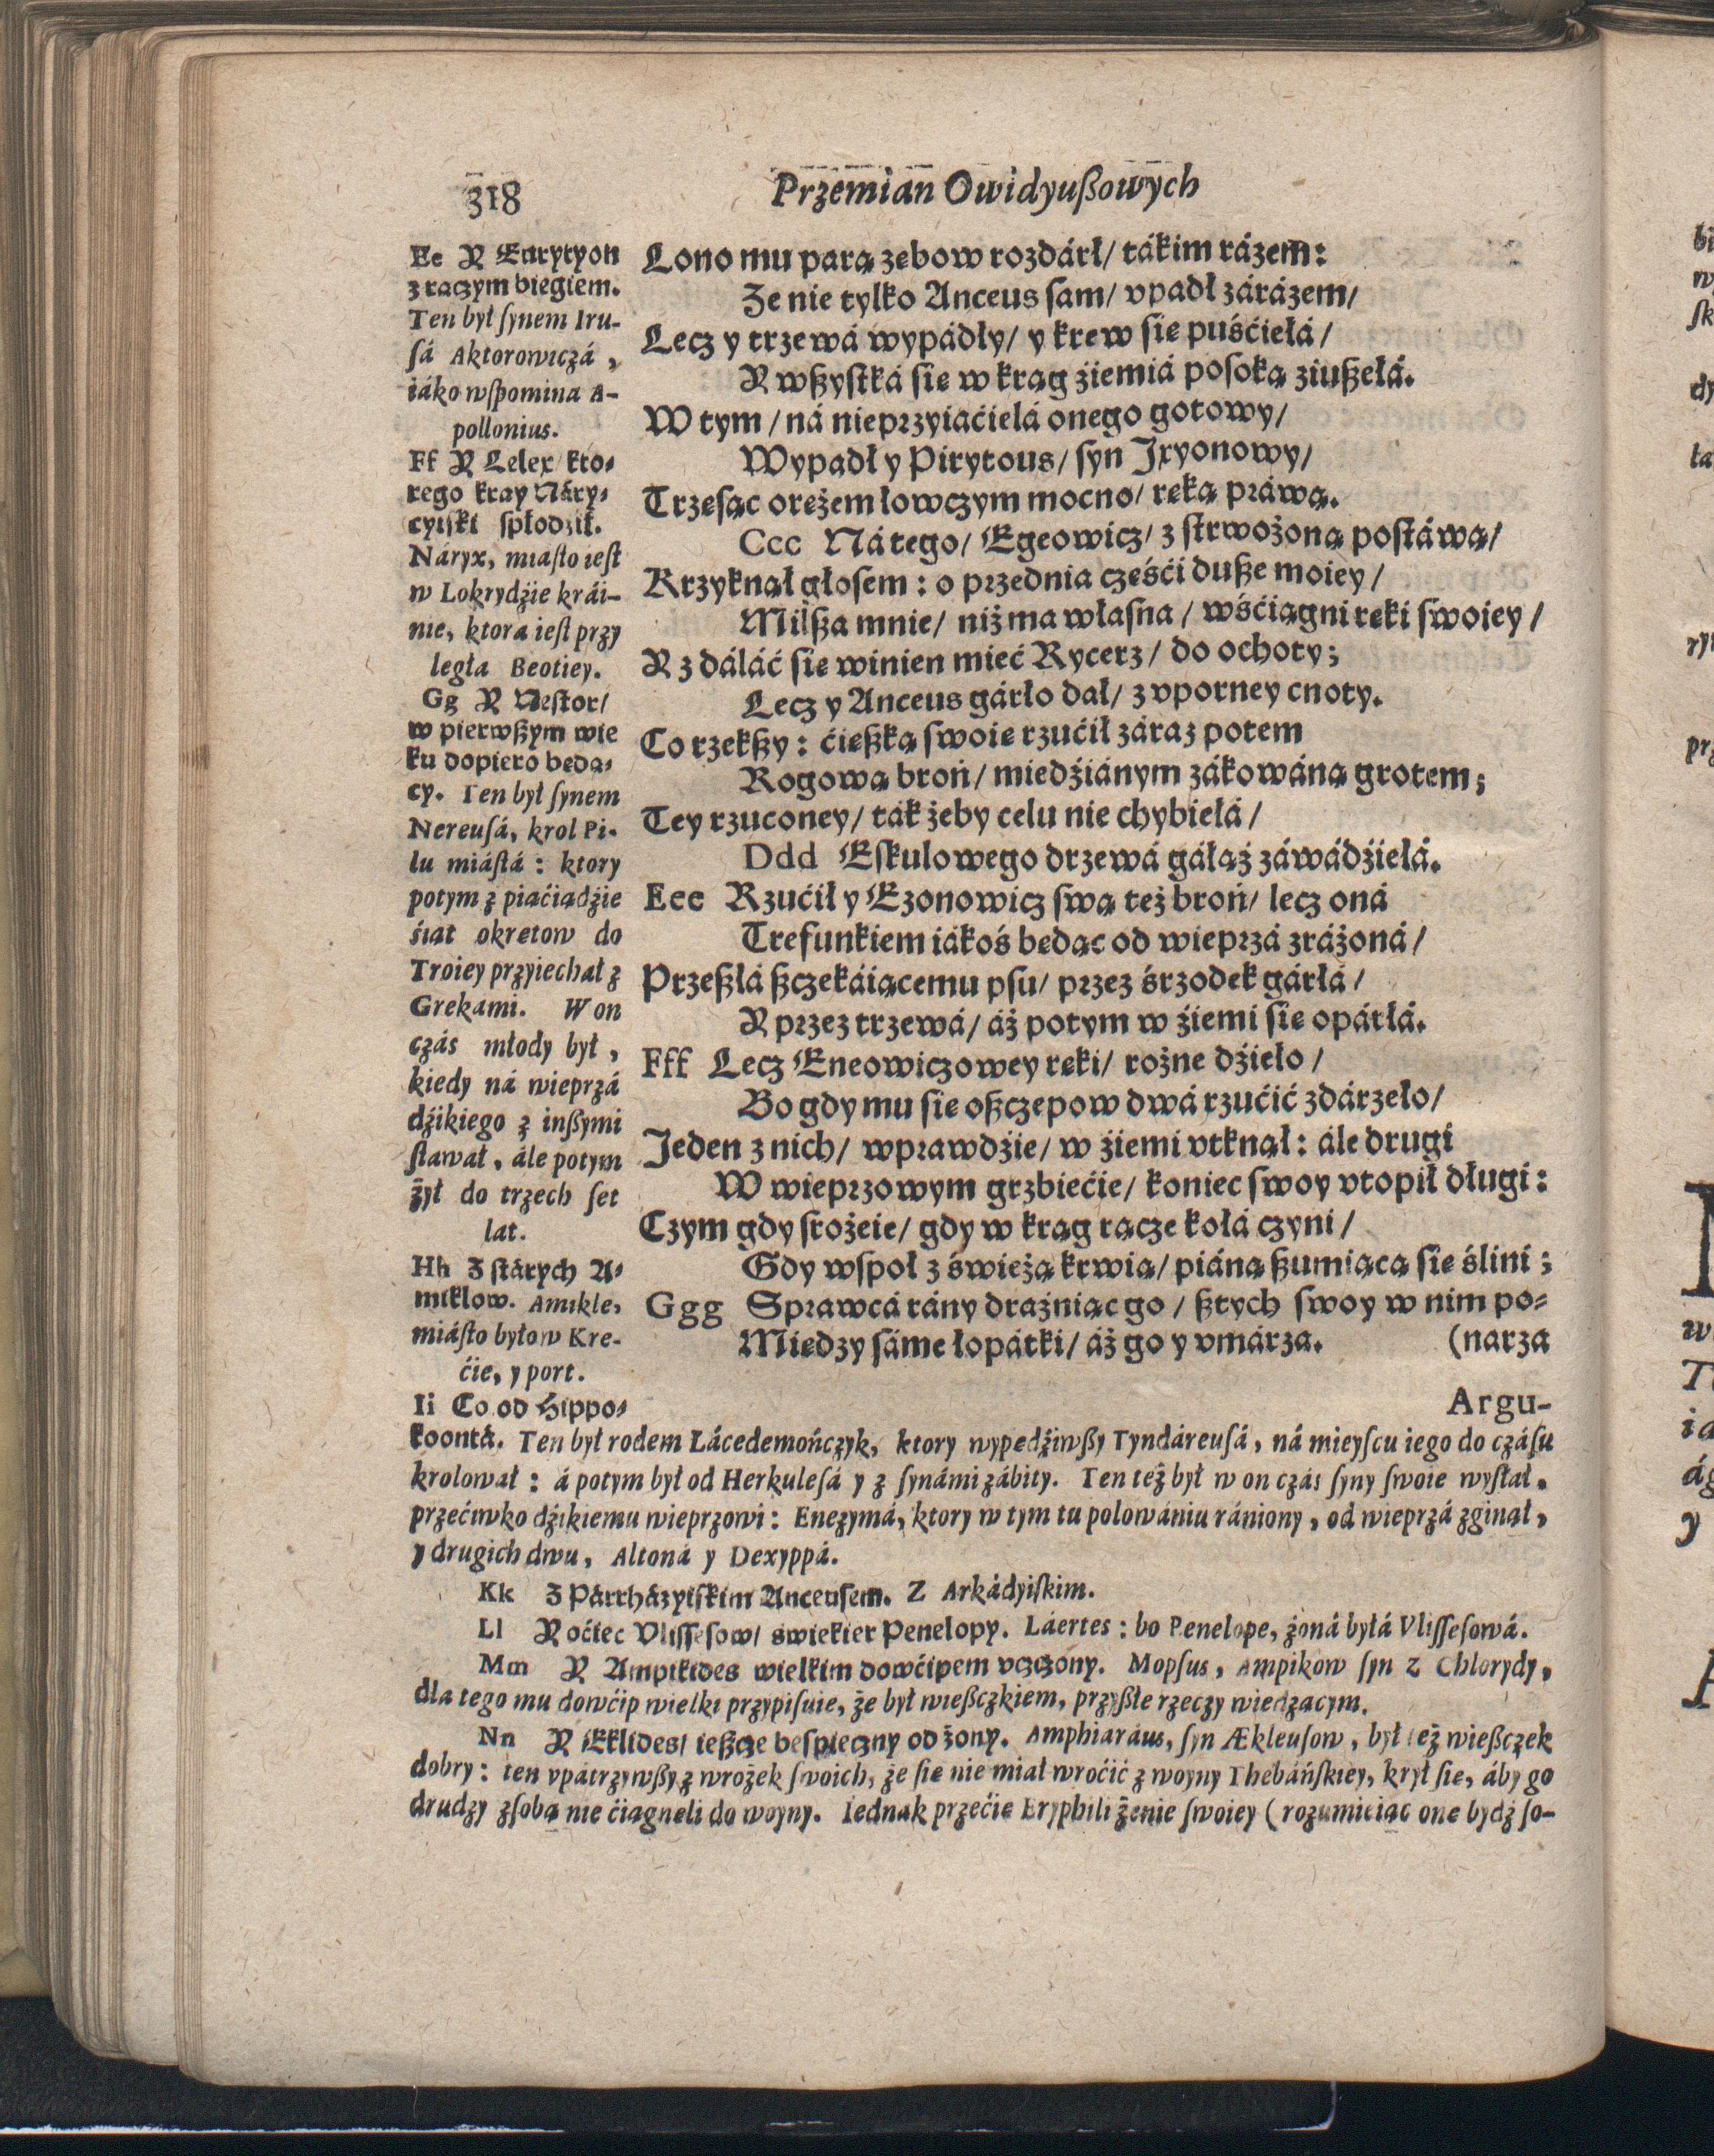 318
Przemian Owidyußowych
Lono mu parą zębow rozdárł/ tákim rázem:
Że nie tylko Anceus ſam/ vpadł zárázem/
Lecz y trzewá wypádły/ y krew ſie puśćiełá/
Y wßyſtká ſie w krąg źiemiá poſoką ziußełá.
W tym/ ná nieprzyiaćielá onego gotowy/
Wypadł y Pirytous/ ſyn Jxyonowy/
Trzeſąc orężem łowczym mocno/ ręką práwą.
Ccc Ná tego/ Egeowicz/ z ſtrwożoną poſtáwą/
Krzyknął głoſem: o przednia cześći duße moiey/
Milßa mnie/ niż ma własna/ wśćiągni ręki ſwoiey/
Y z dáláć ſie winien mieć Rycerz/ do ochoty;
Lecz y Anceus gárło dał/ z vporney cnoty.
Co rzekßy: ćießką ſwoie rzućił záraz potem
Rogową broń/ miedźiánym zákowáną grotem;
Tey rzuconey/ ták żeby celu nie chybielá/
Ddd Eſkulowego drzewá gáłąź záwádźiełá.
Eee Rzućił y Ezonowicz ſwą też broń/ lecz oná
Trefunkiem iákoś będąc od wieprzá zráżoná/
Przeßłá ßczekáiącemu pſu/ przez śrzodek gárłá/
Y przez trzewá/ áż potym w źiemi ſie opárłá.
Fff Lecz Eneowiczowey ręki/ rożne dźieło/
Bo gdy mu ſie oßczepow dwá rzućić zdárzeło/
Jeden z nich/ wprawdźie/ w źiemi vtknął: ále drugi
W wieprzowym grzbiećie/ koniec ſwoy vtopił długi:
Czym gdy ſrożeie/ gdy w krąg rącze kołá czyni/
Gdy wſpoł z świeżą krwią/ piáną ßumiącą ſie ślini;
Ggg Sprawcá rány drażniąc go/ ßtych ſwoy w nim po-
Miedzy ſáme łopátki/ áż go y vmárza. (narza
Argu-
Ee Y Eurytyon
z rączym biegiem.
Ten był ſynem Iru-
ſá Aktorowiczá,
iáko wſpomina A-
pollonius.
Ff Y Lelex kto-
rego kray Náry-
cyiſki ſpłodził.
Náryx, miaſto ieſt
w Lokrydźie krái-
nie, ktora ieſt przy
legła Beotiey.
Gg Y Neſtor/
w pierwßym wie
ku dopiero będą-
cy. Ten był ſynem
Nereuſá, krol Pi-
lu miáſtá: ktory
potym z piaćiądźie
śiąt okretow do
Troiey przyiechał z
Grekami. W on
czás młody był,
kiedy ná wieprzá
dźikiego z inßymi
ſtawał, ále potym
żył do trzech ſet
lat.
Hh Z ſtárych A-
miklow. Amikle,
miáſto było w Kre-
ćie, y port.
Ii Co od Hippo-
koontá. Ten był rodem Lácedemończyk, ktory wypędźiwßy Tyndáreuſá, ná mieyſcu iego do czáſu
krolował: á potym był od Herkuleſá y z ſynámi zábity. Ten też był w on czás ſyny ſwoie wyſłał,
przećiwko dźikiemu wieprzowi: Enezymá, ktory w tym tu polowániu rániony, od wieprzá zginął,
y drugich dwu, Altoná y Dexyppá.
Kk Z Párrházyiſkim Anceuſem. Z Arkádyiſkim.
Ll Y oćiec Vliſſeſow/ świekier Penelopy. Láertes: bo Penelope, żoná byłá Vliſſeſowá.
Mm Y Ampikides wielkim dowćipem vczczony. Mopſus, Ampikow ſyn z Chlorydy,
dla tego mu dowćip wielki przypiſuie, że był wießczkiem, przyßłe rzeczy wiedzącym.
Nn Y Eklides/ ießcze beſpieczny od żony. Amphiaraus, ſyn Ækleuſow, był też wießczek
dobry: ten vpátrzywßy z wrożek ſwoich, że ſie nie miał wroćić z woyny Thebáńſkiey, krył ſie, áby go
drudzy zſobą nie ćiągneli do woyny. Iednak przećie Eryphili żenie ſwoiey (rozumieiąc one bydź ſo-